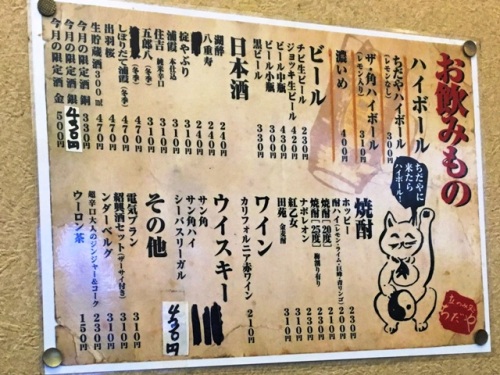 お飲みもの
ハイボール
ちだやハイボール
(レモンなし)
300円
ザ・角ハイボール
(レモン入り)
310円
濃いめ
400円
ビール
チビ生ビール
230円
ジョッキ生ビール
420円
ビール中瓶
430円
ビール小瓶
330円
黒ビール
330円
日本酒
湖酔
240円
八重寿
240円
掟やぶり
240円
浦霞 本仕込
310円
住吉 純米辛口
310円
五郎八 (冬季)
310円
(冬季)
しぼりたて浦霞 (冬季)
470円
出羽桜
470円
生貯蔵酒300ml
470円
今月の限定酒 銅
330円
今月の限定酒 銀
430円
今月の限定酒 金
500円
ちだやに
来たら
ハイボール!
焼酎
ホッピー
230円
酎ハイ(レモン・ライム・巨峰・青リンゴ)
焼酎[20度]
焼酎[25度]
梅割り有り
ナポレオン
紅乙女
田苑 金麦醇
310円
ワイン
カリフォルニア赤ワイン
210円
ウイスキー
サン角
サン角ハイ
シーバスリーガル
430円
その他
電気ブラン
310円
紹興酒セット(ザーサイ付き)
310円
ンダーベルグ
310円
超辛口大人のジンジャー&コーク
230円
ウーロン茶
150円